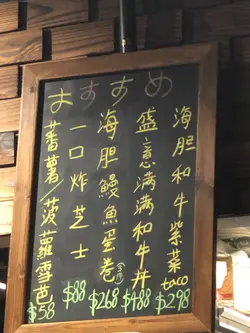 おすすめ
海胆和牛紫菜taco
$298
盛意滿滿和牛丼
$488
海胆鰻魚蛋卷
$268
一口炸芝士
$88
蕃薯/菠蘿雪芭
$58